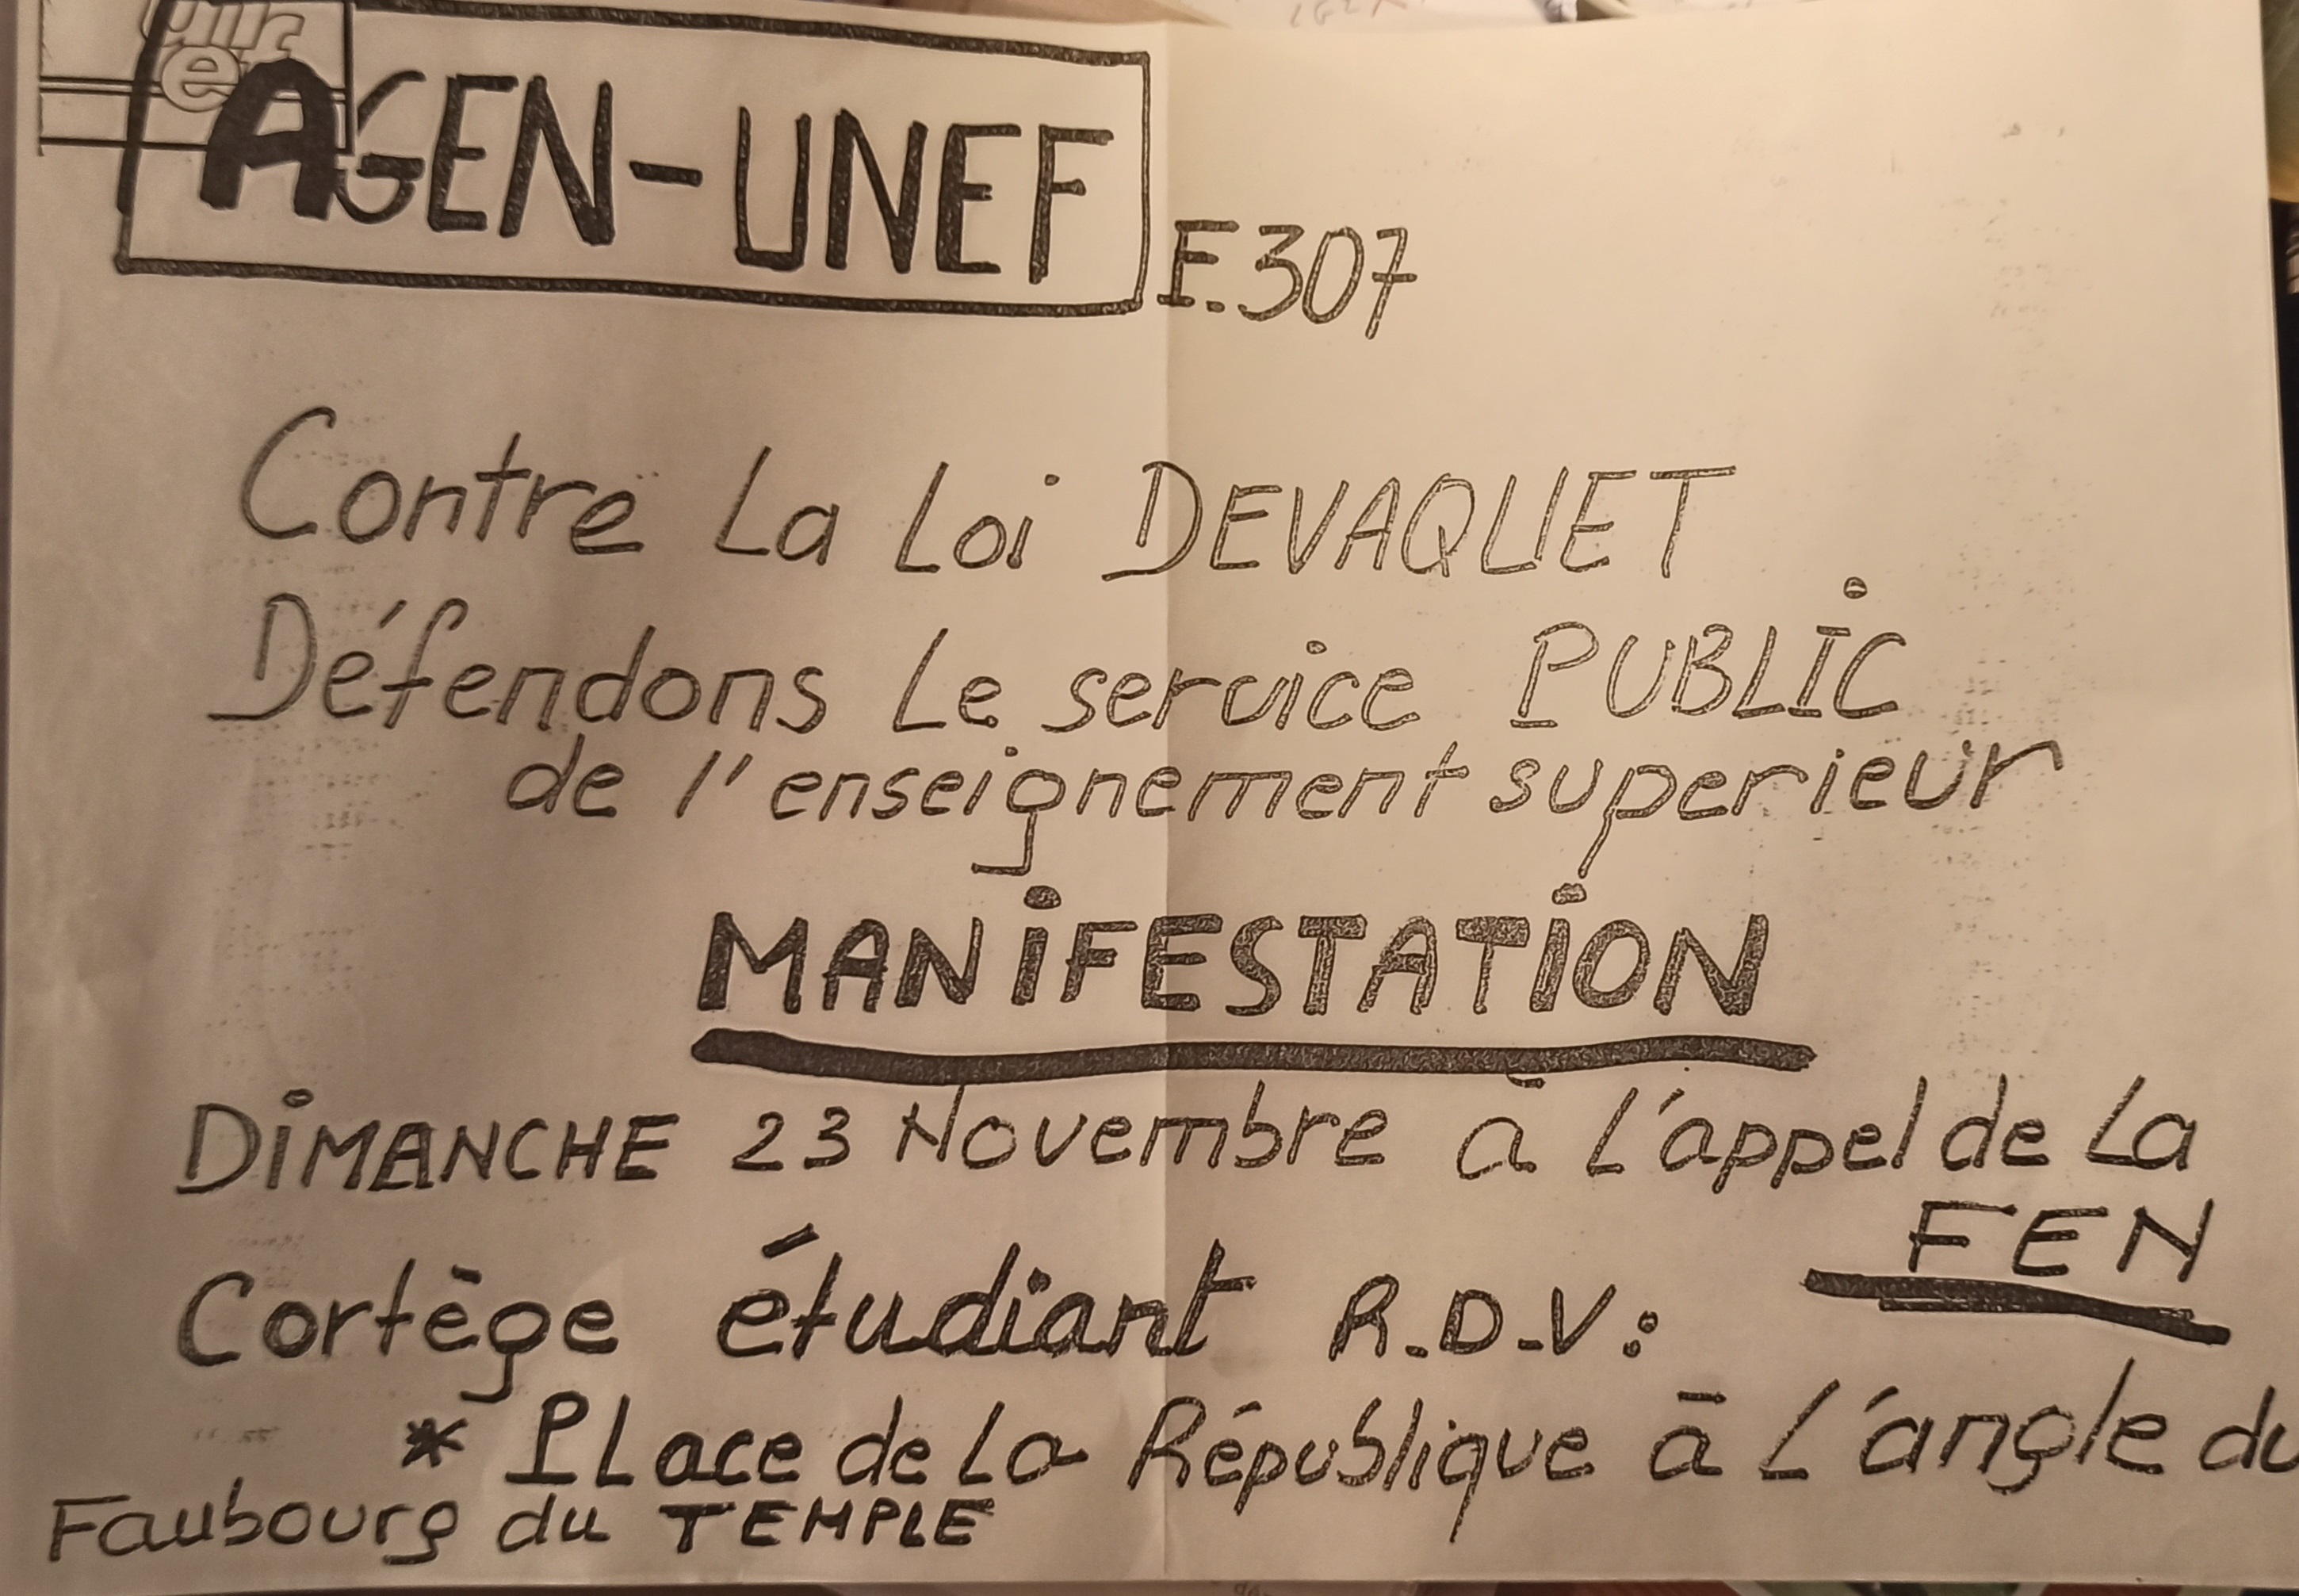 unef
AGEN-UNEF
E.307
Contre La Loi DEVAQUET
Défendons Le service PUBLIC
de l'enseignement superieur
MANIFESTATION
DIMANCHE 23 Novembre à L'appel de La
FEN
Cortège étudiant R.D.V:
* PLace de La République à L'angle du
Faubourg du TEMPLE